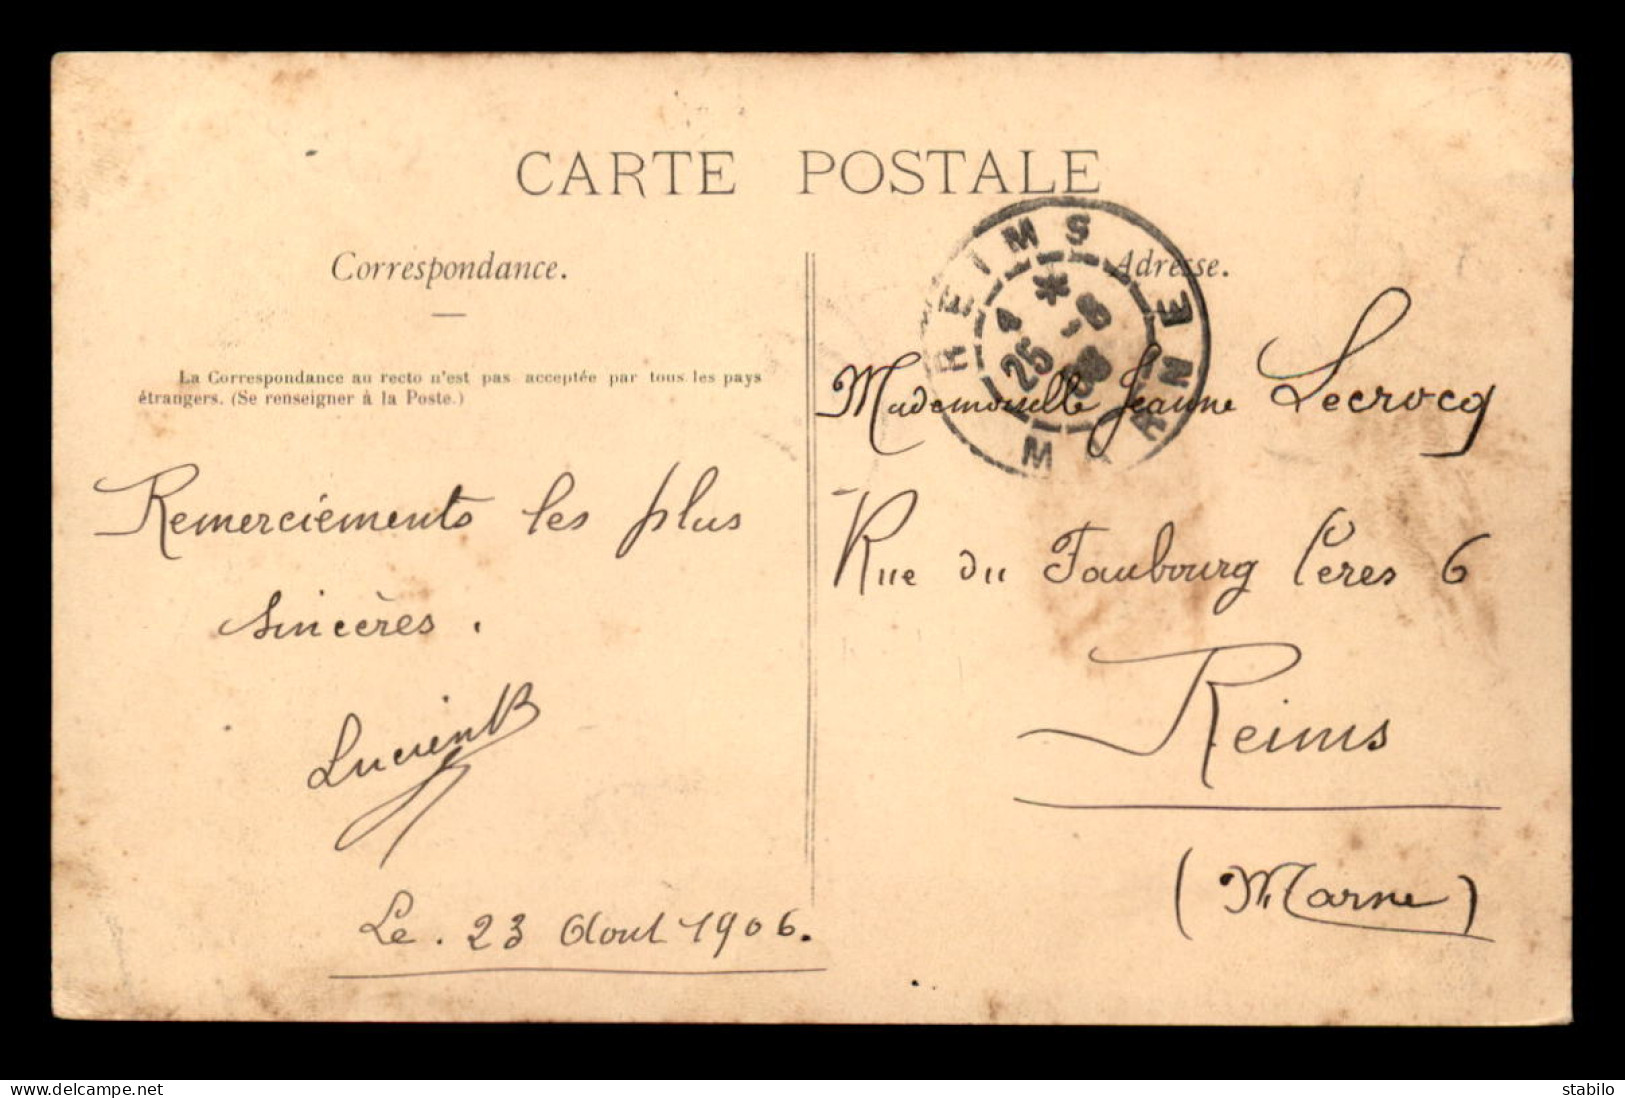 CARTE POSTALE
Correspondance.
La Correspondance au recto n'est pas acceptée par tous les pays
étrangers. (Se renseigner à la Poste.)
Remerciements les plus
sincères.
Lucien B
Le. 23 Aout 1906.
Adresse.
REIMS
MARNE
4 *
25 -8
06
Mademoiselle Jeanne Lecrocq
Rue du Faubourg Cères 6
Reims
(Marne)
www.delcampe.net
stabilo